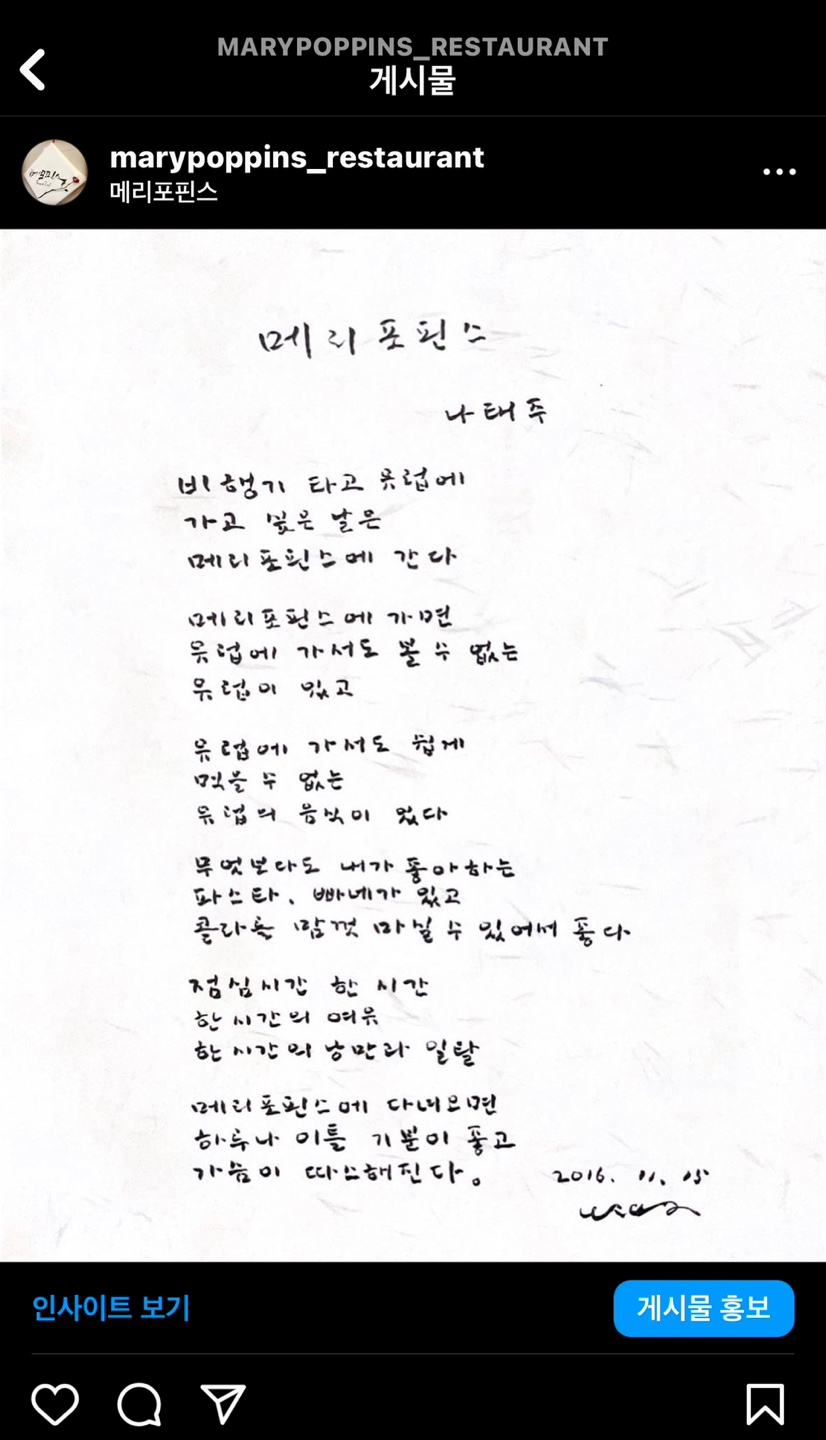 MARYPOPPINS_RESTAURANT
게시물
marypoppins_restaurant
메리포핀스
메리포핀스
나태주
비행기 타고 유럽에
가고 싶은 날은
메리포핀스에 간다
메리포핀스에 가면
유럽에 가서도 볼 수 없는
유럽이 있고
유럽에 가서도 쉽게
먹을 수 없는
유럽의 음식이 있다
무엇보다도 내가 좋아하는
파스타, 빠네가 있고
콜라를 맘껏 마실 수 있어서 좋다
점심시간 한 시간
한 시간의 여유
한 시간의 낭만과 일탈
메리포핀스에 다녀오면
하루나 이틀 기분이 좋고
가슴이 따스해진다。
2016. 11. 15
인사이트 보기
게시물 홍보